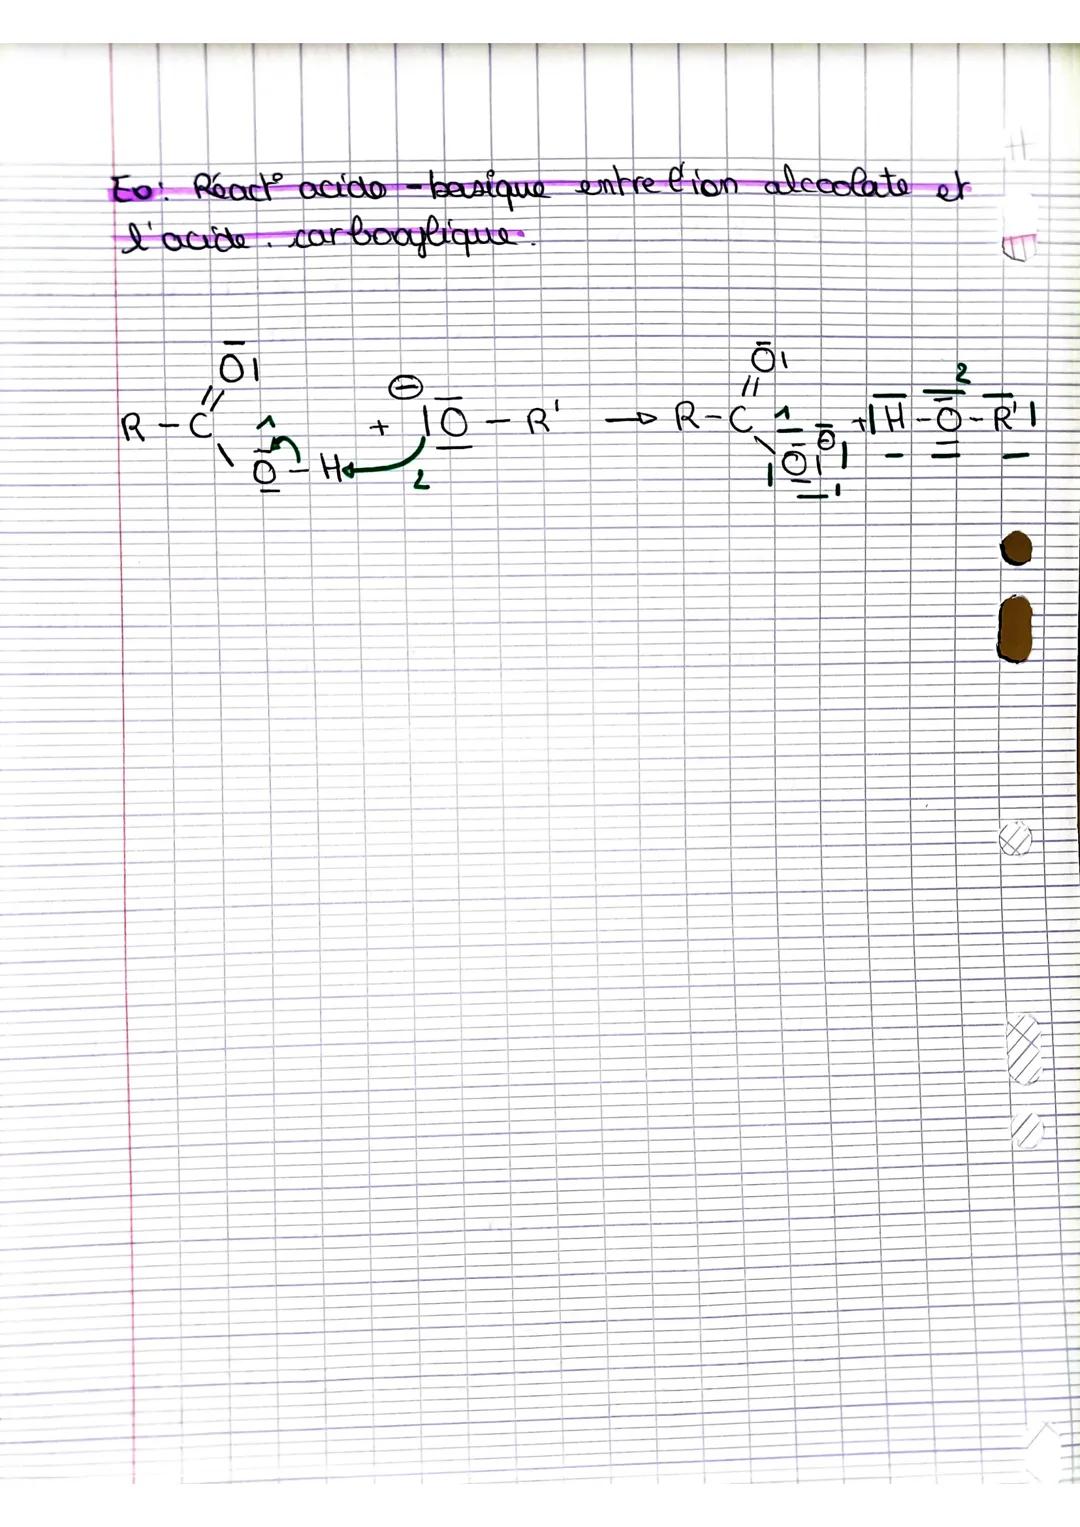 Ex: Réact° acido-basique entre l'ion alcoolate et
l'acide carboxylique.
O
R - C
O - H
+
⊖
|O - R'
→
R - C
O
1
O|
⊖
+
H - O - R'
2
1
2